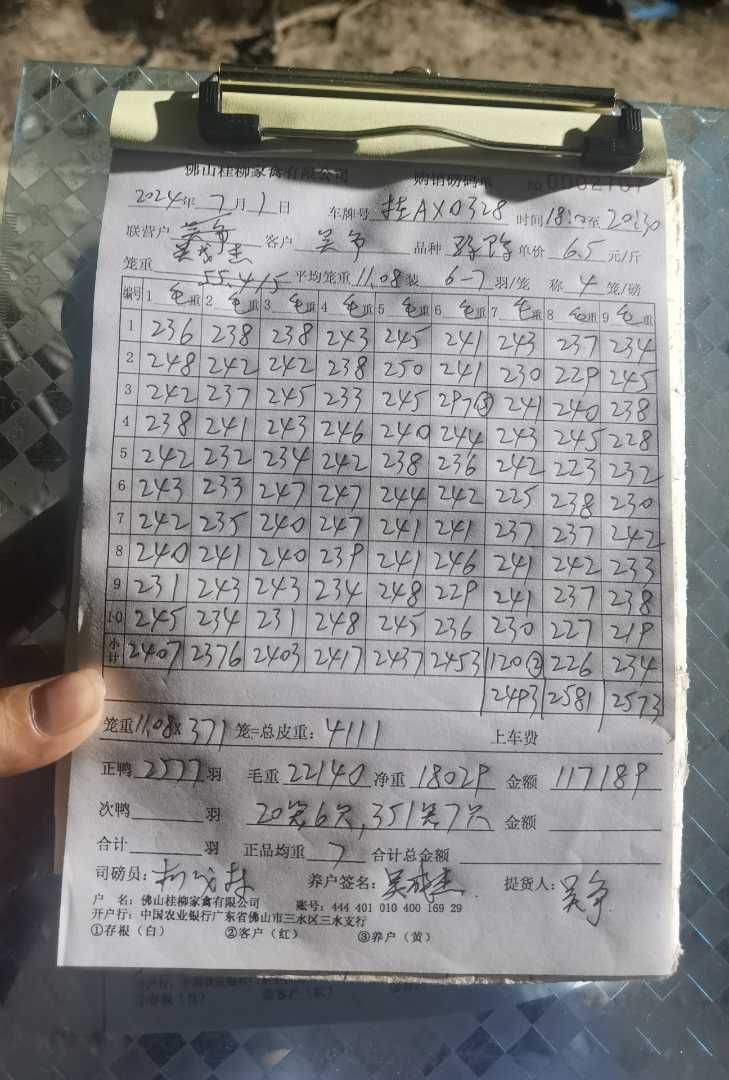 佛山桂柳家禽有限公司 购销磅码单 NO 0002767
2024年 7月 1日 车牌号 桂AX0328 时间 18:10至20:30
联营户 吴成杰 客户 吴争 品种 单价 6.5 元/斤
笼重 55.4/5 平均笼重 11.08 装 6-7 羽/笼 称 4 笼/磅
编号 1 毛重 2 毛重 3 毛重 4 毛重 5 毛重 6 毛重 7 毛重 8 毛重 9 毛重
1 236 238 238 243 245 241 243 237 234
2 248 242 242 238 250 241 230 229 245
3 242 237 245 233 245 297⑤ 241 240 238
4 238 241 243 246 240 244 243 245 228
5 242 232 234 242 238 236 242 223 232
6 243 233 247 247 244 242 225 238 230
7 242 235 240 247 241 241 237 237 242
8 240 241 240 239 241 246 241 242 233
9 231 243 243 234 248 229 241 237 238
10 245 234 231 248 245 236 230 227 219
小计 2407 2376 2403 2417 2437 2453 120② 226 234
2493 2581 2573
笼重 11.08×371 笼=总皮重: 4111 上车费
正鸭 2577 羽 毛重 22140 净重 18029 金额 117189
次鸭 羽 20笼6只,351笼7只 金额
合计 羽 正品均重 7 合计总金额
司磅员: 养户签名: 吴成杰 提货人: 吴争
户 名: 佛山桂柳家禽有限公司 账号: 444 401 010 400 169 29
开户行: 中国农业银行广东省佛山市三水区三水支行
①存根(白) ②客户(红) ③养户(黄)